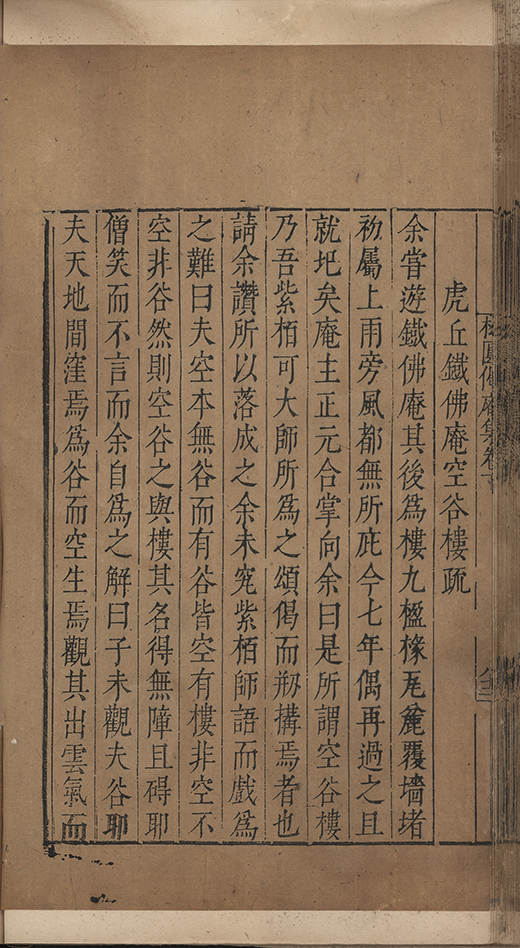 虎丘鐵佛庵空谷樓疏
余嘗遊鐵佛庵其後為樓九楹椽瓦麄覆墻堵
初屬上雨旁風都無所庇今七年偶再過之且
就圯矣庵主正元合掌向余曰是所謂空谷樓
乃吾紫栢可大師所為之頌偈而剏搆焉者也
請余讚所以落成之余未究紫栢師語而戲為
之難曰夫空本無谷而有谷皆空有樓非空不
空非谷然則空谷之與樓其名得無障且碍耶
僧笑而不言而余自為之解曰子未觀夫谷耶
夫天地間窪焉為谷而空生焉觀其出雲氣而